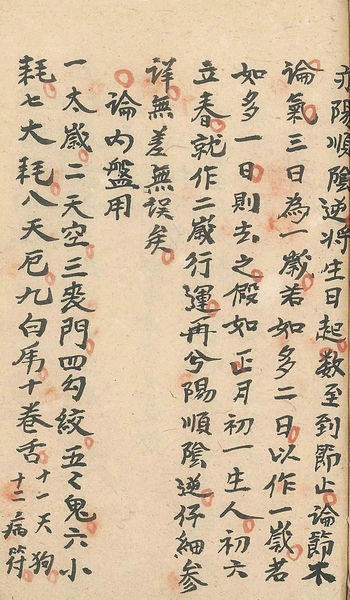 亦陽順陰逆將生日起数至到節止論節不
論氣三日為一嵗若如多二日以作一嵗若
如多一日則去之假如正月初一生人初六
立春就作二嵗行運再分陽順陰逆仔細參
詳無差無誤矣
論内盤用
一太嵗二天空三喪門四勾絞五々鬼六小
耗七大耗八天厄九白虎十卷舌十一天狗
十二病符